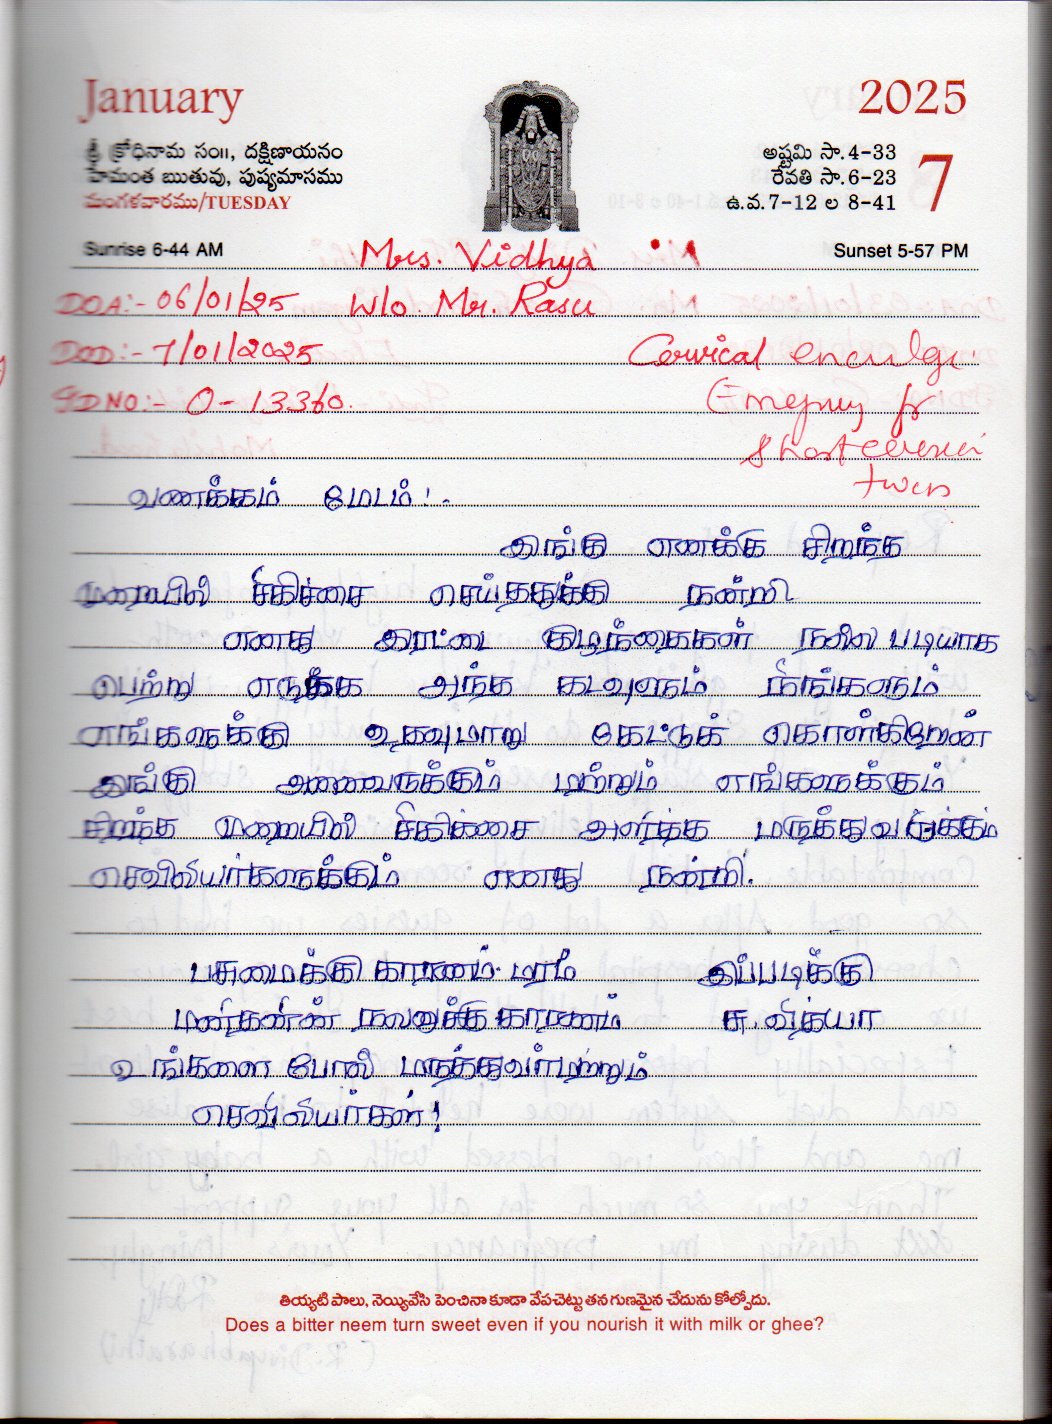 January 2025
శ్రీ క్రోధినామ సం॥, దక్షిణాయనం అష్టమి సా.4-33 7
హేమంత ఋతువు, పుష్యమాసము రేవతి సా.6-23
మంగళవారము/TUESDAY ఉ.వ.7-12 ల 8-41
Sunrise 6-44 AM Sunset 5-57 PM
Mrs. Vidhya
DOA:- 06/01/25 W/o. Mr. Rasu
DOD:- 7/01/2025 Cervical
IPD NO:- O-13360. for
Short
twin
வணக்கம் மேடம்!
இங்கு எனக்கு சிறந்த
முறையில் சிகிச்சை செய்ததுக்கு நன்றி.
எனது இரட்டை குழந்தைகள் நல்ல படியாக
பெற்று எடுக்க அந்த கடவுளும் நீங்களும்
எங்களுக்கு உதவுமாறு கேட்டுக் கொள்கிறேன்
இங்கு அனைவருக்கும் மற்றும் எங்களுக்கும்
சிறந்த முறையில் சிகிச்சை அளித்த மருத்துவருக்கும்
செவிலியர்களுக்கும் எனது நன்றி.
பசுமைக்கு காரணம் மரம் இப்படிக்கு
நலவுக்கு காரணம் சு. வித்யா
உங்களை போல் மருத்துவர் மற்றும்
செவிலியர்கள்!
తియ్యటి పాలు, నెయ్యివేసి పెంచినా కూడా వేపచెట్టు తన గుణమైన చేదును కోల్పోదు.
Does a bitter neem turn sweet even if you nourish it with milk or ghee?